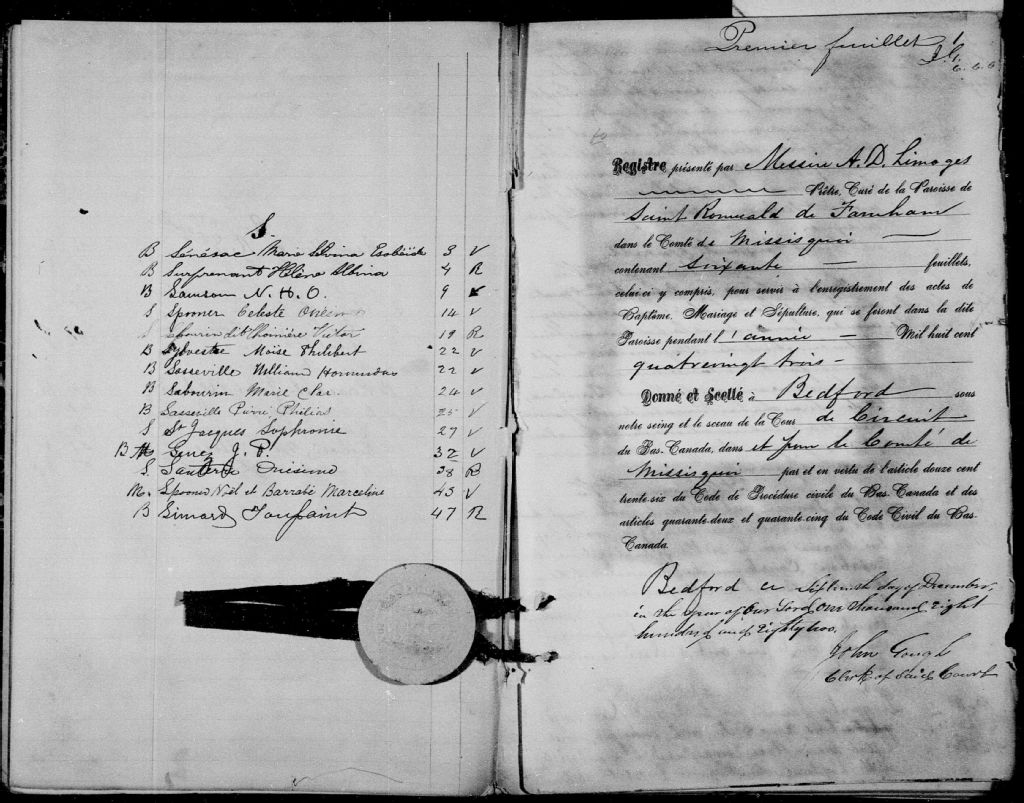 S.
B Sénésac Marie Selvina 3 V
B Surprenant Hélène Albina 4 R
B Samson N. H. O. 9
S Spooner Celeste 14 V
S dit Victor 19 R
B Sylvestre Moise Philibert 22 V
B Sasseville William Hormisdas 22 V
B Sabourin Marie Clar. 24 V
B Sasseville Pierre Philias 25 V
S St Jacques Sophronie 27 V
B J. P. 32 V
S 38 R
M. Spooner Noël et Barrabé Marceline 43 V
B Simard Toussaint 47 R
Premier feuillet 1
J. G.
C. C. C.
Registre présenté par Messire A. D. Limoges
Prêtre, Curé de la Paroisse de
Saint Romuald de Farnham
dans le Comté de Missisquoi
contenant soixante feuillets,
celui-ci y compris, pour servir à l'enregistrement des actes de
Baptême, Mariage et Sépulture, qui se feront dans la dite
Paroisse pendant l'année Mil huit cent
quatrevingt trois
Donné et Scellé à Bedford sous
notre seing et le sceau de la Cour de Circuit
du Bas-Canada, dans et pour le Comté de
Missisquoi par et en vertu de l'article douze cent
trente-six du Code de Procédure civile du Bas-Canada et des
articles quarante-deux et quarante-cinq du Code Civil du Bas-
Canada.
Bedford day of December,
in the year of our Lord One thousand Eight
hundred and Eighty two.
John Gough
Clerk of said Court